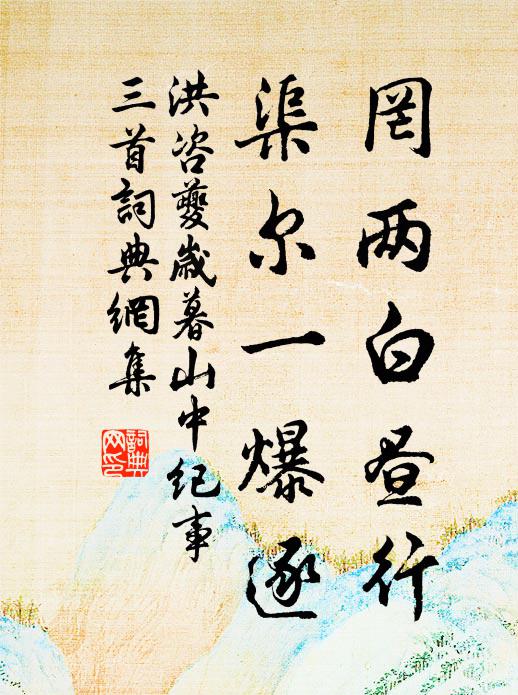 罔两白昼行
渠尔一爆逐
洪咨夔歲暮山中纪事
三首詞典網集
詞典
网印